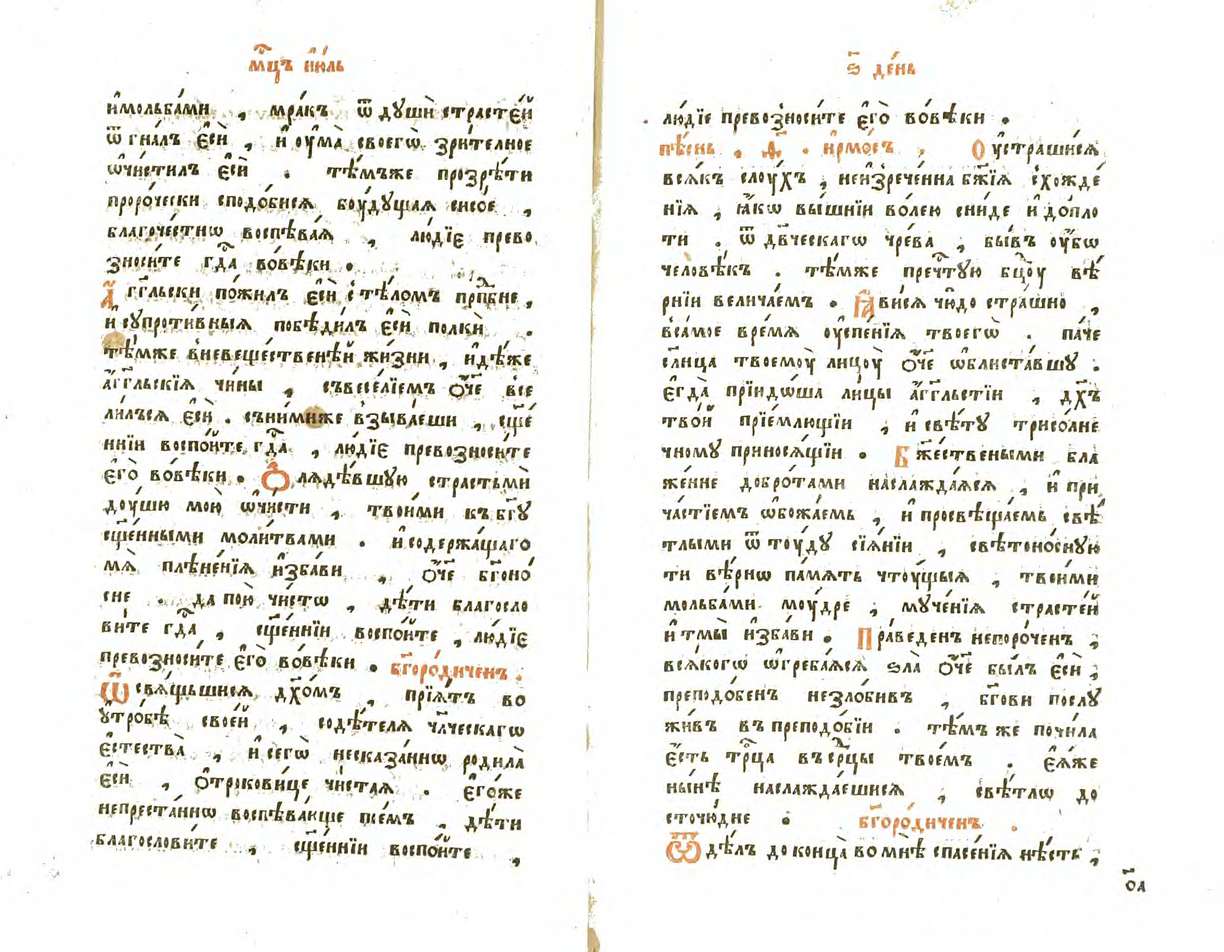 мц҃ъ и҆ю́ль
и҆мольба́ми , мра́къ ѿ дꙋшѝ страсте́й
ѿгна́лъ є҆сѝ , и҆ оу҆ма̀ своегѡ̀ зри́тельное
ѡ҆чи́стилъ є҆сѝ . тѣ́мъже прозрѣ́ти
проро́чески сподо́бися бꙋ́дꙋщая сисо́е ,
благоче́стнѡ воспѣва́ѧ , лю́дїє прево
зноси́те гдⷭ҇а вовѣ́ки .
А҆́гг҃льски пожи́лъ є҆сѝ стѣ́ломъ прпⷣбне ,
и҆ сꙋпроти́вныѧ побѣди́лъ є҆сѝ полкѝ .
тѣ́мже вневеще́ственѣй жи́зни , и҆дѣ́же
а҆́гг҃льскїѧ чи́ны , съвесе́лїемъ ѻ҆́ч҃е все
ли́лъсѧ є҆сѝ . съни́миже взыва́еши , сщ҃е
ннїи воспо́йте гдⷭ҇а , лю́дїє превозноси́те
є҆го̀ вовѣ́ки . Ѻ҆лѧдѣ́вшꙋю страстьмѝ
доу́шю мою̀ ѡ҆чи́сти , твои́ми къ бг҃ꙋ
сщ҃е́нными моли́твами . и҆ содержа́щаго
мѧ̀ плѣне́нїѧ и҆зба́ви , ѻ҆́ч҃е бг҃оно́
сне . да пою̀ чи́стѡ , дѣ́ти благосло
ви́те гдⷭ҇а , сщ҃е́ннїи воспо́йте , лю́дїє
превозноси́те є҆го̀ вовѣ́ки . бг҃оро́диченъ .
Ѡ҆свѧ́щьшисѧ дх҃о́мъ , прїѧ́тъ во
ꙋтро́бѣ свое́й , содѣ́телѧ чл҃ческагѡ
є҆стества̀ , и҆ сегѡ̀ несказа́ннѡ родила̀
є҆сѝ , ѻ҆трокови́це чи́стаѧ . є҆го́же
непреста́ннѡ воспѣва́юще пое́мъ , дѣ́ти
благослови́те , сщ҃е́ннїи воспо́йте ,
ѕ҃ де́нь
лю́дїе превозноси́те є҆го̀ вовѣ́ки .
пѣ́снь , ѳ҃ . и҆рмо́съ , Оу҆страши́сѧ
всѧ́къ слоу́хъ , неизрече́нна бж҃їѧ схожде́
нїѧ , ꙗ҆́кѡ вы́шнїи во́лею сни́де и҆ допло́
ти . ѿ дв҃ческагѡ чре́ва , бы́въ оу҆́бѡ
человѣ́къ . тѣ́мже пречⷭ҇тꙋю бц҃оу вѣ́
рнїи велича́емъ . Ꙗ҆ви́сѧ чю́до стра́шно ,
вса́мое вре́мѧ оу҆спе́нїѧ твоегѡ̀ . па́че
сл҃нца твоемоу̀ лицоу̀ ѻ҆́ч҃е ѡ҆блиста́вшꙋ .
є҆гда̀ прїидо́ша ли́цы а҆́гг҃льстїи , дх҃ъ
тво́й прїе́млющїи , и҆ свѣ́тꙋ трисо́лне
чномꙋ принося́щїи . Бж҃е́ствеными бла
же́нне добро́тами наслажда́ѧсѧ , и҆ при
ча́стїемъ ѡ҆божа́емь , и҆ просвѣща́емь свѣ́
тлыми ѿ тоу́дꙋ сїѧ́нїи , свѣтоно́снꙋю
ти вѣ́рнѡ па́мѧть чтоу́щыѧ , твои́ми
мольба́ми моу́дре , мꙋче́нїѧ страсте́й
и҆ тмы̀ и҆зба́ви . Пра́веденъ непоро́ченъ ,
всѧ́когѡ ѡ҆греба́ѧсѧ ѕла̀ ѻ҆́ч҃е бы́лъ є҆сѝ ,
преподо́бенъ незло́бивъ , бг҃ови послꙋ
жи́въ въ преподо́бїи . тѣ́мъ же почи́ла
є҆́сть трⷪ҇ца въ срⷣцы твое́мъ . є҆ѧ́же
ны́нѣ наслажда́ешисѧ , свѣ́тлѡ до
сточю́дне . бг҃оро́диченъ .
Ѿдѣ́лъ до конца̀ во мнѣ̀ спасе́нїѧ нѣ́сть ,
ѻ҃а